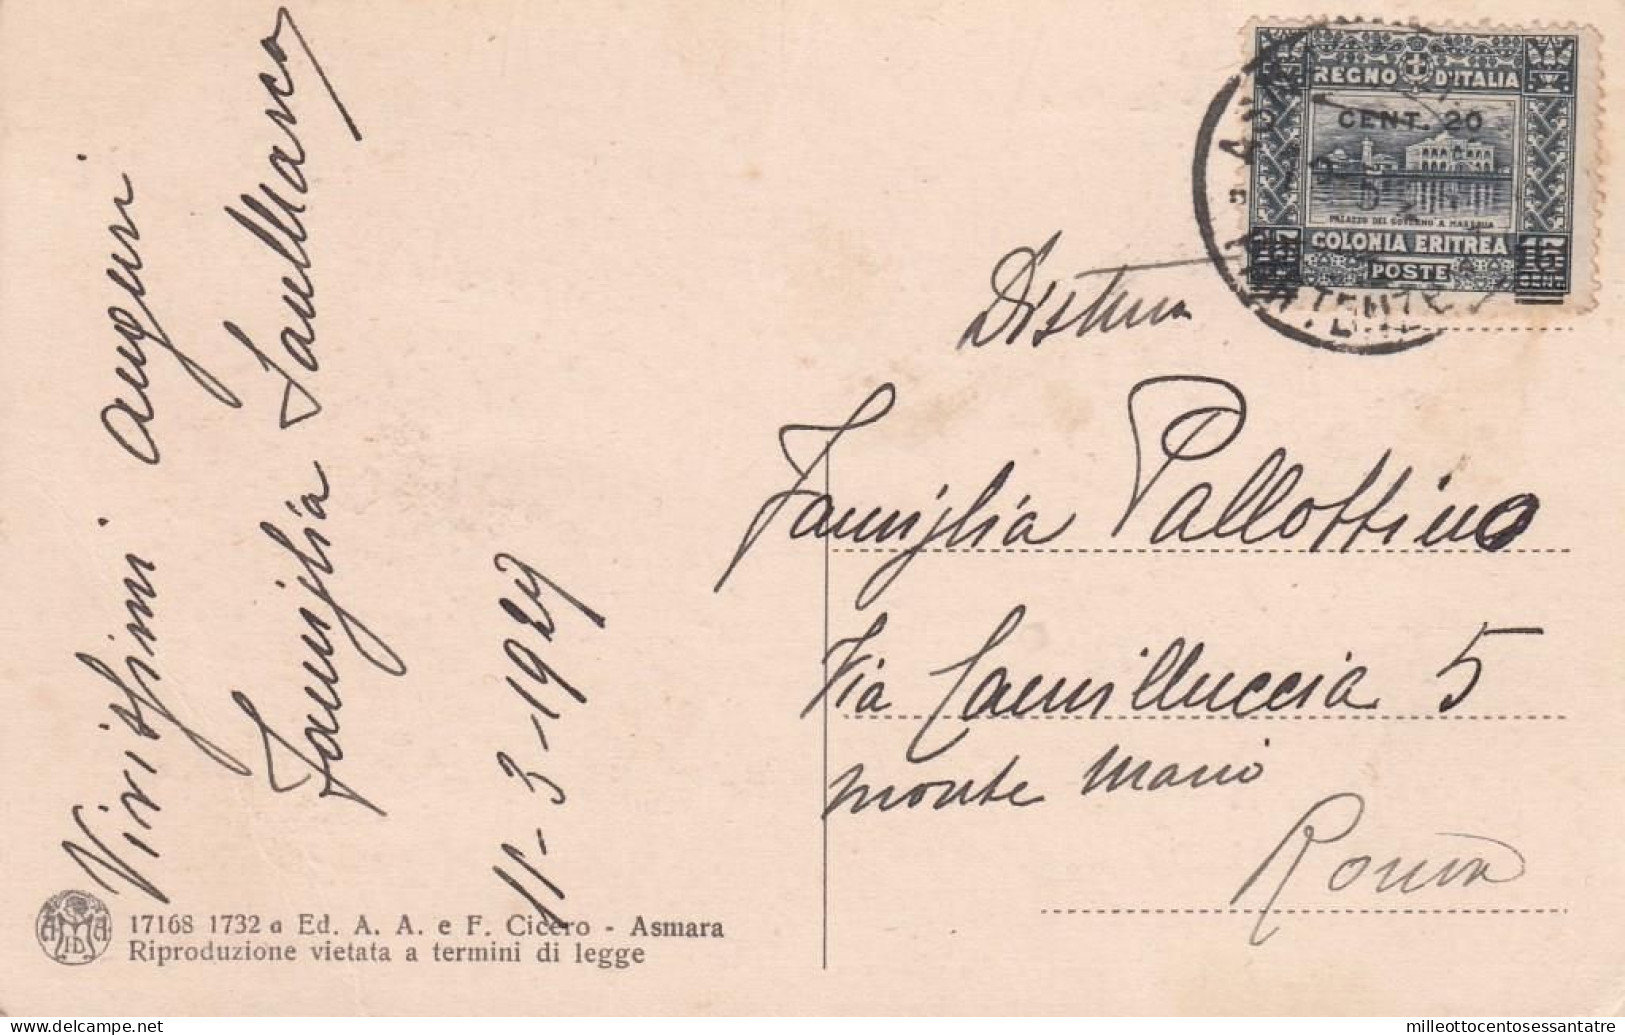 Vivissimi auguri
Famiglia Sanmarco
11-3-1929
REGNO D'ITALIA
CENT. 20
PALAZZO DEL GOVERNO A MASSAUA
COLONIA ERITREA
15
CENT
POSTE
Famiglia Pallottino
Via Camilluccia 5
monte Mario
Roma
17168 1732 a Ed. A. A. e F. Cicero - Asmara
Riproduzione vietata a termini di legge
www.delcampe.net
milleottocentosessantatre